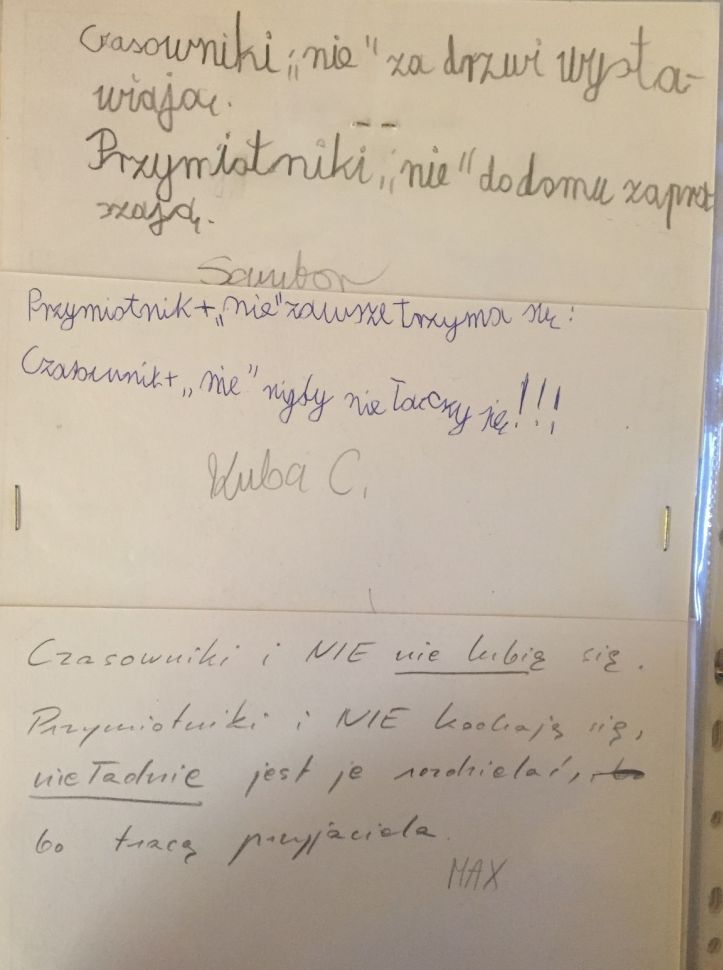 Czasowniki „nie" za drzwi wysta-
wiają.
Przymiotniki „nie" do domu zapra-
szają.
Sambor
Przymiotnik + „nie" zawsze trzyma się!
Czasownik + „nie" nigdy nie łączy się!!!
Kuba C.
Czasowniki i NIE nie lubią się.
Przymiotniki i NIE kochają się,
nieładnie jest je rozdzielać,
bo tracą przyjaciela.
MAX